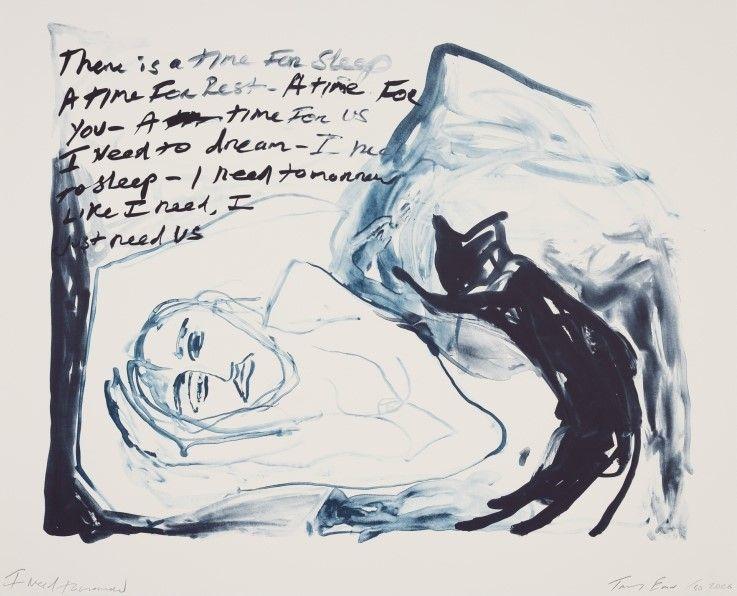 There is a time For Sleep
A time For Rest - A time For
You - A time For us
I Need to dream - I
to sleep - I need tomorrow
Like I need, I
Just need Us
I Need tomorrow
2020